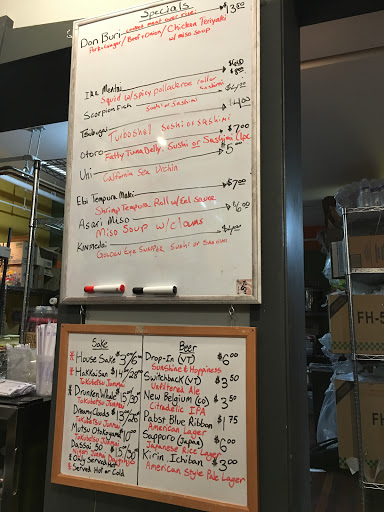 Specials
Don Buri $13.50
Pork+Ginger/Beef+Onion/Chicken Teriyaki
w/ miso soup
Ika Mentai
Squid w/spicy pollack roe roll or sashimi
Scorpion Fish
Sushi or Sashimi
Tsubugai $4.00
Turboshell Sushi or Sashimi
Otoro $7.00
Fatty Tuna Belly. Sushi or Sashimi (1pc
Uni $5
California Sea Urchin
Ebi Tempura Maki $7.00
Shrimp Tempura Roll w/ Eel Sauce
Asari Miso $6.00
Miso Soup w/clams
Kinmedai
Golden Eye Snapper Sushi or Sashimi
Sake
House Sake $3.76
Hakkaisan $14/28
Tokubetsu Junmai
Drunken Whale $15/30
Tokubetsu Junmai
Dreamy Clouds $13/26
Tokubetsu Junmai
Mutsu Otokoyama
Tokubetsu Junmai
Dassai 50 $15/30
Only Served
Served Hot or Cold
Beer
Drop-In (VT) $6.00
Sunshine & Happiness
Switchback (VT) $3.50
Unfiltered Ale
New Belgium (CO) $3.50
Citradelic IPA
Pabst Blue Ribbon $1.75
American Lager
Sapporo (Japan) $6.00
Japanese Rice Lager
Kirin Ichiban $3.00
American Style Pale Lager
FH-5
FH